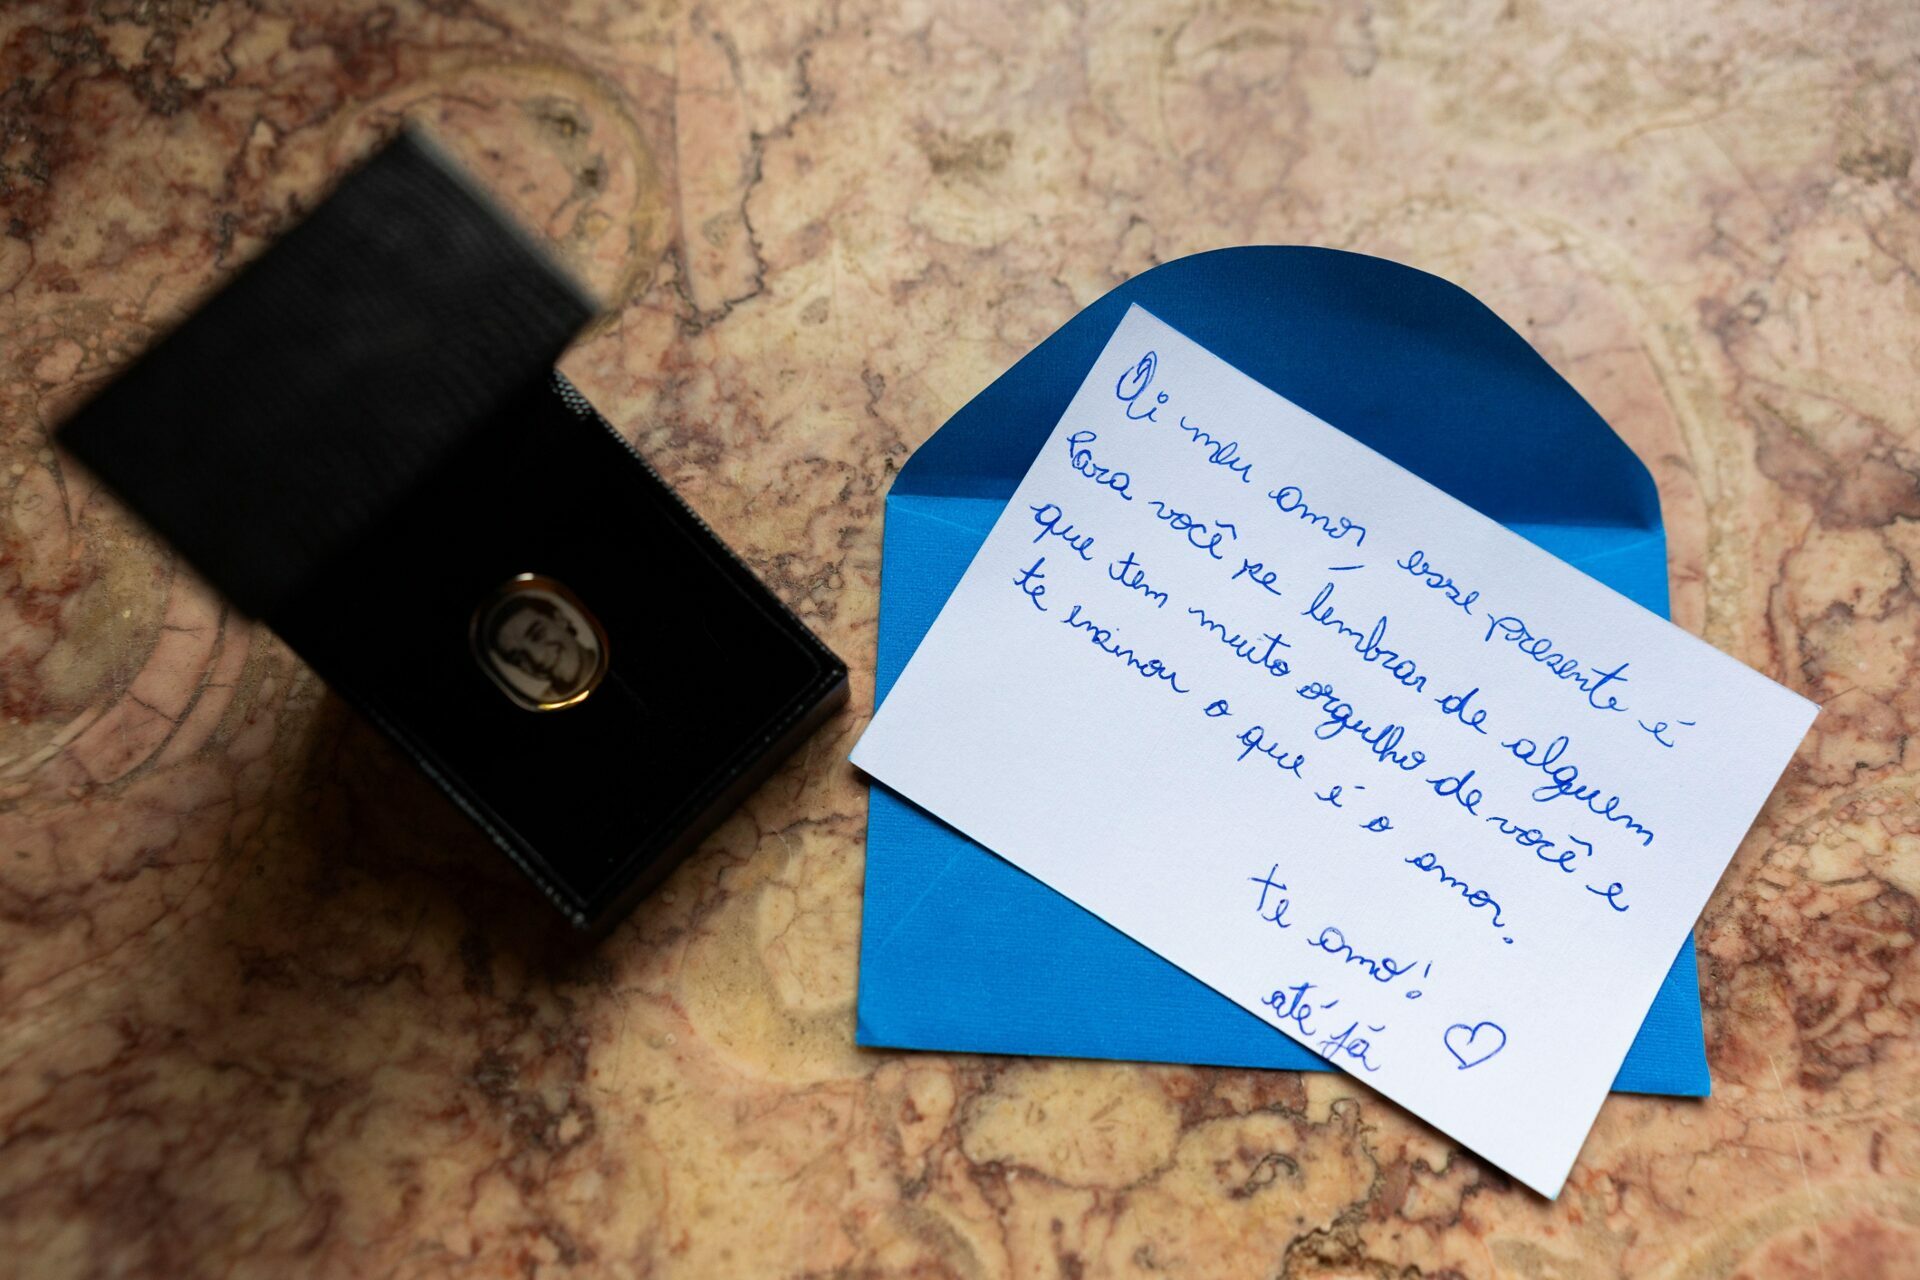 Oi meu amor, esse presente é
para você se lembrar de alguem
que tem muito orgulho de você e
te ensinou o que é o amor.
te amo!
até já